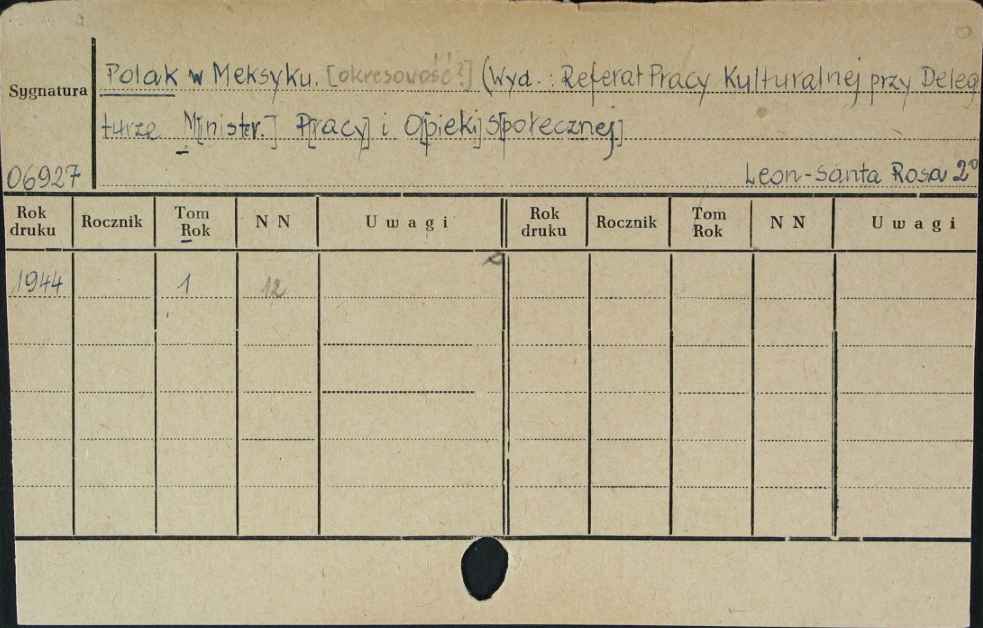 Polak w Meksyku. [okresowość?] (Wyd.: Referat Pracy Kulturalnej przy Deleg
Sygnatura
turze M[nistr.] P[racy] i O[pieki] S[połecznej]
06927 Leon-Santa Rosa 2°
Rok druku Rocznik Tom Rok N N Uwagi Rok druku Rocznik Tom Rok N N Uwagi
1944 1 12